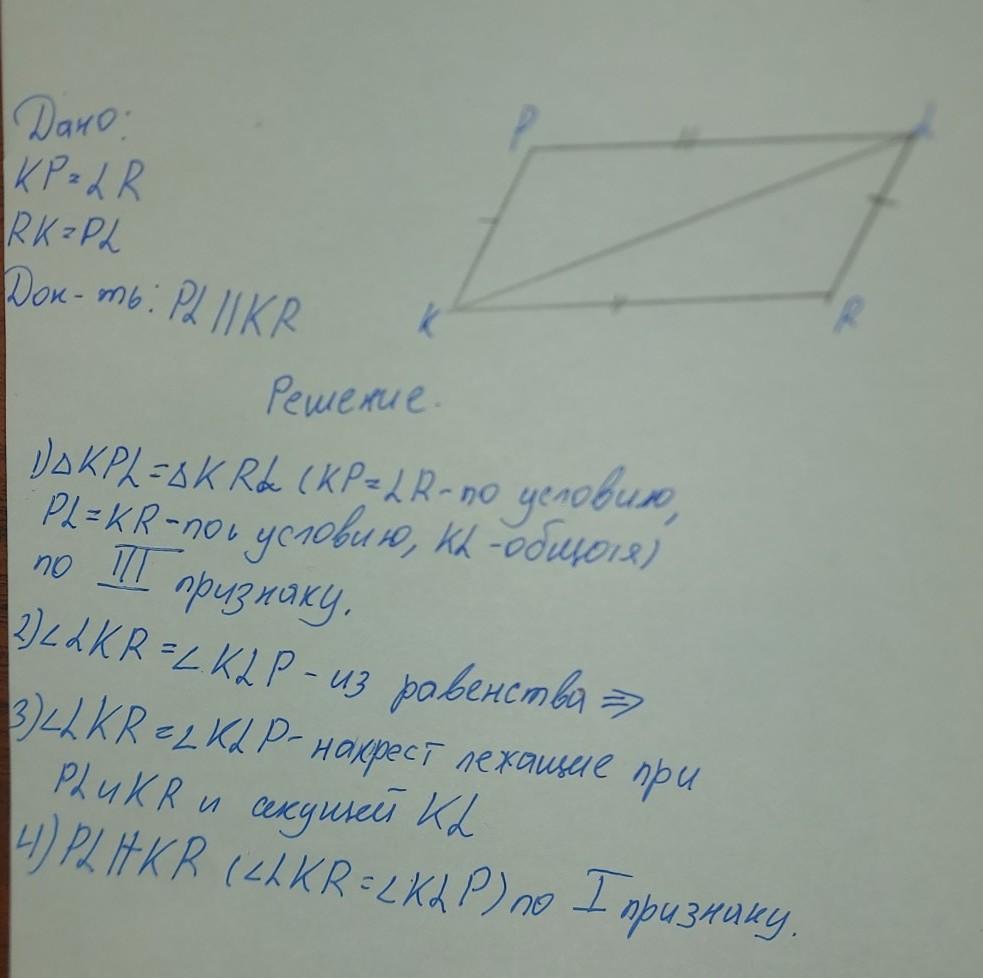 Дано:
KP=LR
RK=PL
Док-ть: PL||KR
P
L
K
R
Решение.
1)△KPL=△KRL (KP=LR-по условию,
PL=KR-по условию, KL-общая)
по III признаку.
2)∠LKR=∠KLP-из равенства⇒
3)∠LKR=∠KLP-накрест лежащие при
PL и KR и секущей KL
4)PL||KR (∠LKR=∠KLP) по I признаку.